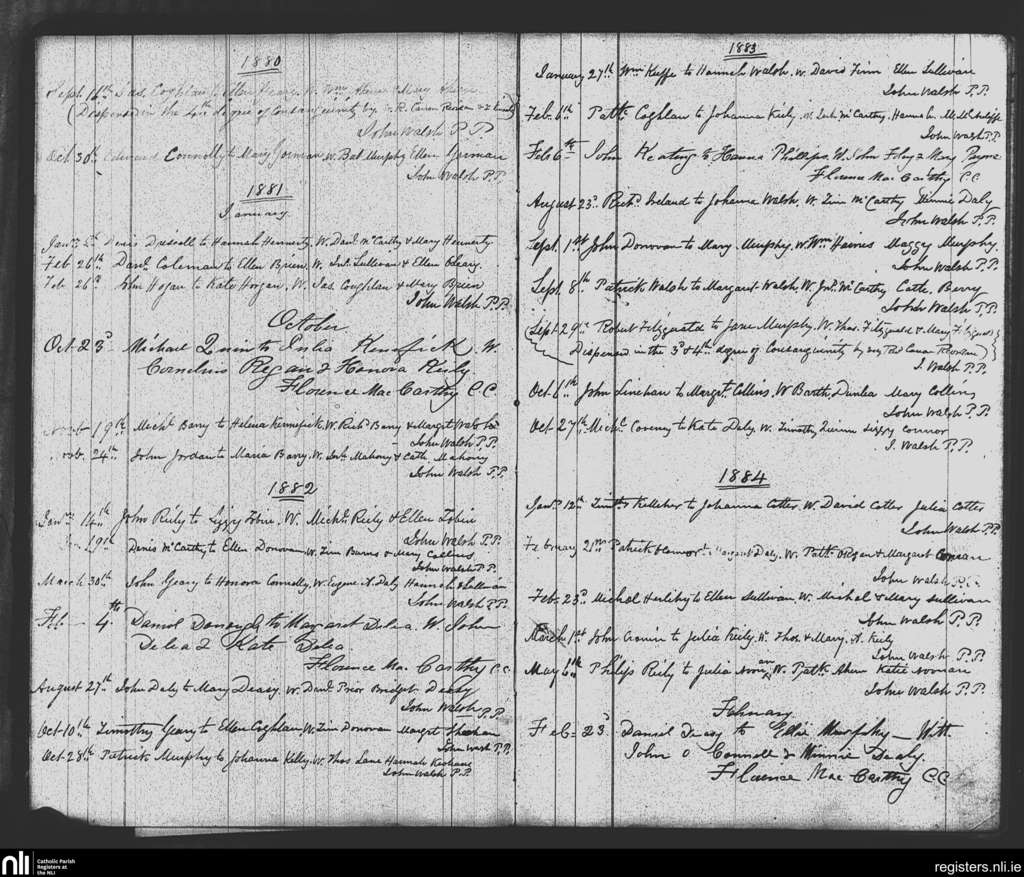 1880
Sept. 14th Jas. Coghlan to Ellen Geary. W. Wm Ahern & Mary Ahern
(Dispensed in the 4th degree of Consanguinity by V. R. Canon
John Walsh P.P.
Oct 30th Edward Connolly to Mary Gorman W. Bat Murphy Ellen Gorman
John Walsh P.P.
1881
January
Jany 2d Denis Driscoll to Hannah Hennerty, W. Danl McCarthy & Mary Hennerty
Feb 26th Danl Coleman to Ellen Brien. W. Jnl Sullivan & Ellen Oleary.
Feb 26th John Hogan to Kate Horgan. W. Jas. Coughlan & Mary Brien
John Walsh P.P.
October
Oct. 23d Michael Quin to Julia Kennfick W.
Cornelius Regan & Honora Riely
Florence Mac Carthy C.C.
Novbr 19th Michl Barry to Helena Kennifick, W. Richd Barry & Margret
John Walsh P.P.
Novb. 24th John Jordan to Maria Barry. W. Jnl. Mahony & Cath. Mahony
John Walsh P.P.
1882
Jany 14th John Riely to Lizzy Tobin. W. Michl Riely & Ellen Tobin
John Walsh P.P.
Jan 19th Denis McCarthy to Ellen Donovan W. Tim Burns & Mary Collins
John Walsh P.P.
March 30th John Geary to Honora Connolly, W. Eugene A. Daly Hannah Sullivan
John Walsh P.P.
Feb 4th Daniel Donough to Margaret Delea. W John
Delea & Kate Delea.
Florence Mac Carthy C.C.
August 27th John Daly to Mary Deasy W. Danl Prior Bridget Deasy
John Walsh P.P.
Oct 10th Timothy Geary to Ellen Coghlan W. Tim Donovan Margrt Sheehan
John Walsh P.P.
Oct. 28th Patrick Murphy to Johanna Kelly. W. Thos Lane Hannah Keohane
John Walsh P.P.
1883
January 27th Wm Keeffe to Hannah Walsh. W. David Finn Ellen Sullivan
John Walsh P.P.
Feb. 6th Patk Coghlan to Johanna Kiely, W. McCarthy. Hannah
John Walsh P.P.
Feb 6th John Keating to Hanna Phillips, W. John Foley & Mary Payne
Florence Mac Carthy C.C.
August 23d Richd Ireland to Johanna Walsh, W. Tim McCarthy Minnie Daly
John Walsh P.P.
Sept. 1st John Donovan to Mary Murphy. W. Wm Haines Maggy Murphy.
John Walsh P.P.
Sept. 8th Patrick Walsh to Margaret Walsh W. Jno. McCarthy Cathe Berry
John Walsh P.P.
(Sept 29th Robert Fitzgerald to Jane Murphy, W. Thos. Fitzgerald & Mary Fitzgerald
Dispensed in the 3d & 4th degree of Consanguinity by Very Revd Canon)
J. Walsh P.P.
Oct 6th John Linehan to Margt. Collins, W Barth. Dunlea Mary Collins
John Walsh P.P.
Oct 27th Michl Coveney to Kate Daly. W. Timothy Quinn Lizzy Connor
J. Walsh P.P.
1884
Jany. 12th Timthy Kelleher to Johanna Cotter W. David Cotter Julia Cotter
John Walsh P.P.
February 21st Patrick OConnor to Margaret Daly, W. Patk. Regan & Margaret
John Walsh P.P.
Feb. 23d Michael Herlihy to Ellen Sullivan. W. Michal & Mary Sullivan
John Walsh P.P.
March 1st John Cronin to Julia Kiely. W. Thos. & Mary. A. Kiely
John Walsh P.P.
May 6th Philip Riely to Julia Noonan, W. Patk Ahern Katie Noonan
John Walsh P.P.
February
Feb. 23d Daniel Deasy to Ellie Murphy — Witt
John O Connell & Minnie Dealy.
Florence Mac Carthy C.C.
nli
Catholic Parish
Registers at
the NLI
registers.nli.ie